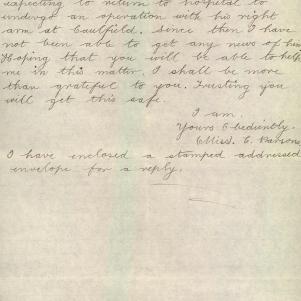 expecting to return to hospital to
undergo an operation with his right
arm at Caulfield. Since then I have
not been able to get any news of him
Hoping that you will be able to help
me in this matter. I shall be more
than grateful to you. Trusting you
will get this safe.
I am,
Yours Obediently.
(Miss). E. Parsons
I have enclosed a stamped addressed
envelope for a reply.